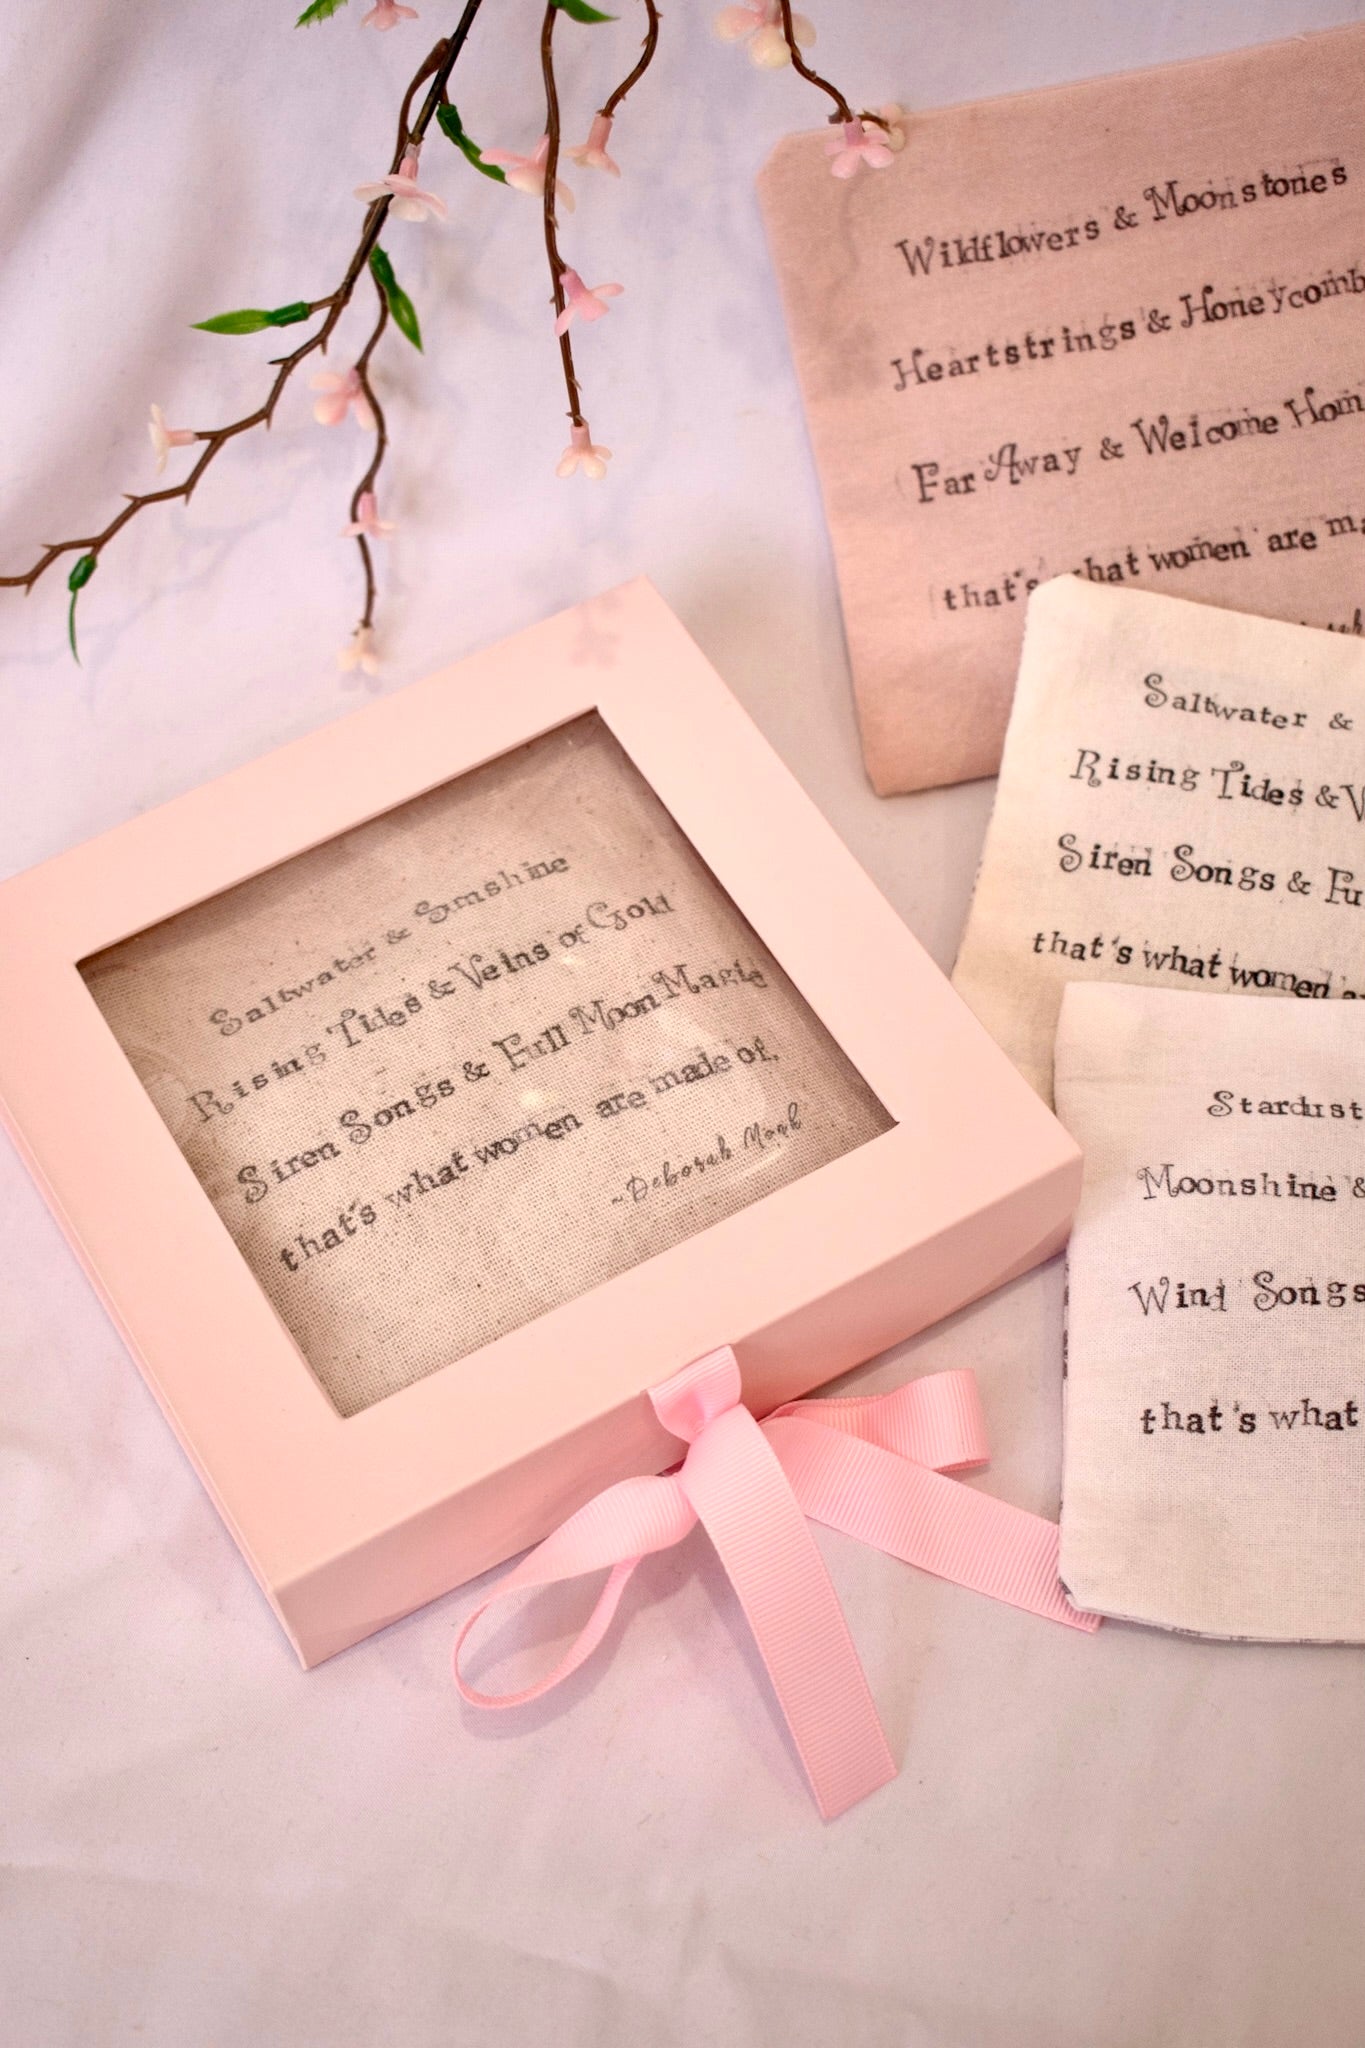 Wildflowers & Moonstones
Heartstrings & Honeycomb
Far Away & Welcome Hom
that's what women are ma
Saltwater &
Rising Tides & V
Siren Songs & Fu
that's what women a
Stardust
Moonshine &
Wind Songs
that's what
Saltwater & Sunshine
Rising Tides & Veins of Gold
Siren Songs & Full Moon Magic
that's what women are made of.
~Deborah Monk